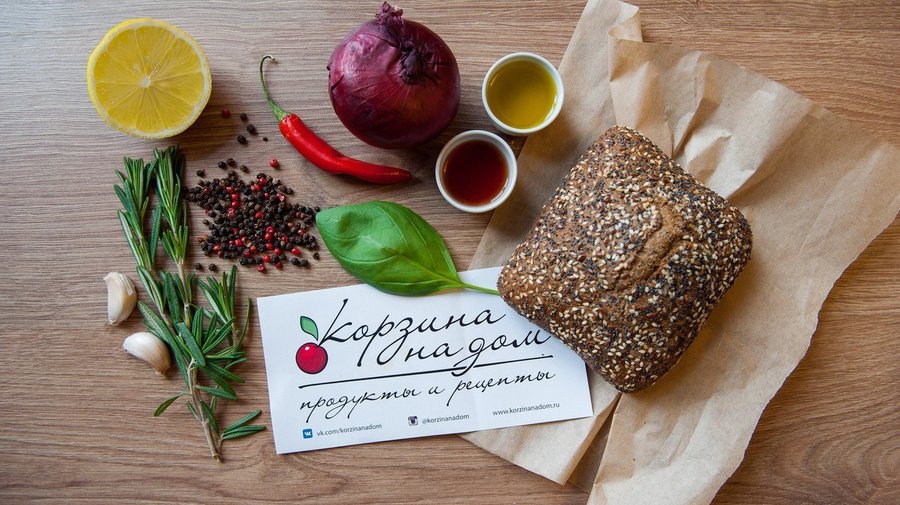 Корзина
на дом
продукты и рецепты
vk.com/korzinanadom
@korzinanadom
www.korzinanadom.ru